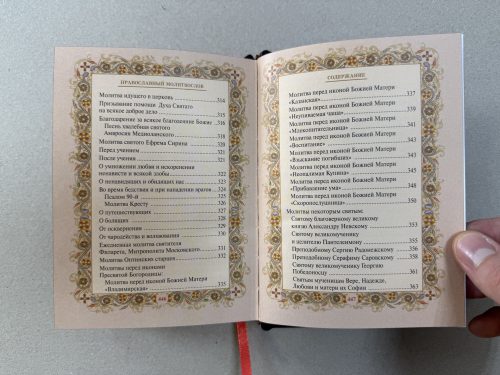 ПРАВОСЛАВНЫЙ МОЛИТВОСЛОВ
Молитва идущего в церковь 314
Призывание помощи Духа Святаго
на всякое доброе дело 315
Благодарение за всякое благодеяние Божие 316
Песнь хвалебная святого
Амвросия Медиоланского
Молитва святого Ефрема Сирина
Перед учением
После учения 321
О умножении любви и искоренении
ненависти и всякой злобы 321
О ненавидящих и обидящих нас 323
Во время бедствия и при нападении врагов 324
Псалом 90-й 324
Молитва Кресту 326
О путешествующих 327
О болящих
От осквернения 329
От чародейства и волхвования
Ежедневная молитва святителя
Филарета, Митрополита Московского
Молитва Оптинских старцев
Молитвы перед иконами
Пресвятой Богородицы:
Молитва перед иконой Божией Матери
«Владимирская» 335
446
СОДЕРЖАНИЕ
Молитва перед иконой Божией Матери
«Казанская» 337
Молитва перед иконой Божией Матери
«Неупиваемая чаша» 339
Молитва перед иконой Божией Матери
«Млекопитательница» 341
Молитва перед иконой Божией Матери
«Воспитание» 343
Молитва перед иконой Божией Матери
«Взыскание погибших» 343
Молитва перед иконой Божией Матери
«Неопалимая Купина» 345
Молитва перед иконой Божией Матери
«Прибавление ума» 348
Молитва перед иконой Божией Матери
«Скоропослушница» 350
Молитвы некоторым святым:
Святому благоверному великому
князю Александру Невскому 353
Святому великомученику
и целителю Пантелеимону 355
Преподобному Сергию Радонежскому 356
Преподобному Серафиму Саровскому 358
Святому великомученику Георгию
Победоносцу 361
Святым мученицам Вере, Надежде,
Любови и матери их Софии 363
447